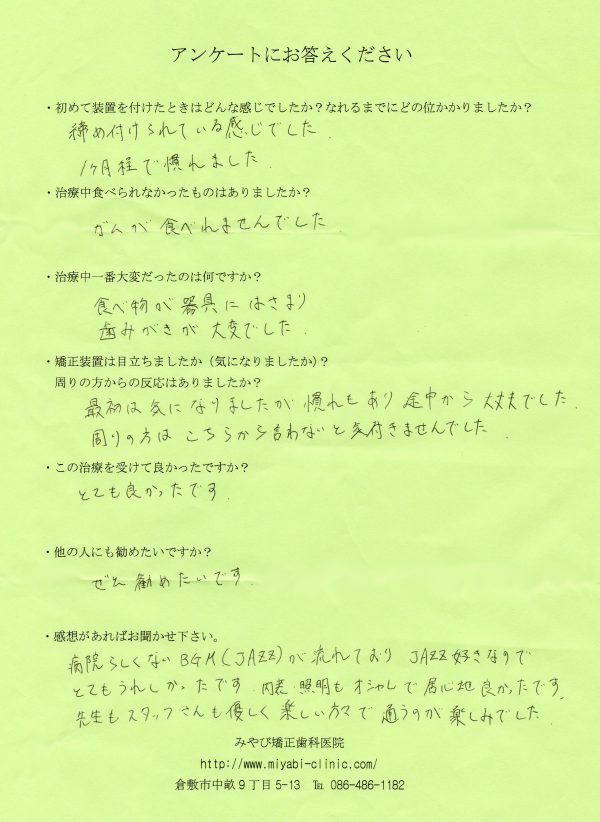 アンケートにお答えください
・初めて装置を付けたときはどんな感じでしたか？なれるまでにどの位かかりましたか？
締め付けられている感じでした.
1ヶ月程で慣れました.
・治療中食べられなかったものはありましたか？
ガムが食べれませんでした.
・治療中一番大変だったのは何ですか？
食べ物が器具にはさまり
歯みがきが大変でした.
・矯正装置は目立ちましたか（気になりましたか）？
周りの方からの反応はありましたか？
最初は気になりましたが慣れもあり途中から大丈夫でした.
周りの方はこちらから言わないと気付きませんでした.
・この治療を受けて良かったですか？
とても良かったです.
・他の人にも勧めたいですか？
ぜひ勧めたいです.
・感想があればお聞かせ下さい。
病院らしくないBGM(JAZZ)が流れており JAZZ好きなので
とてもうれしかったです. 内装・照明もオシャレで居心地良かったです.
先生もスタッフさんも優しく楽しい方々で通うのが楽しみでした.
みやび矯正歯科医院
http://www.miyabi-clinic.com/
倉敷市中畝９丁目 5-13　℡ 086-486-1182